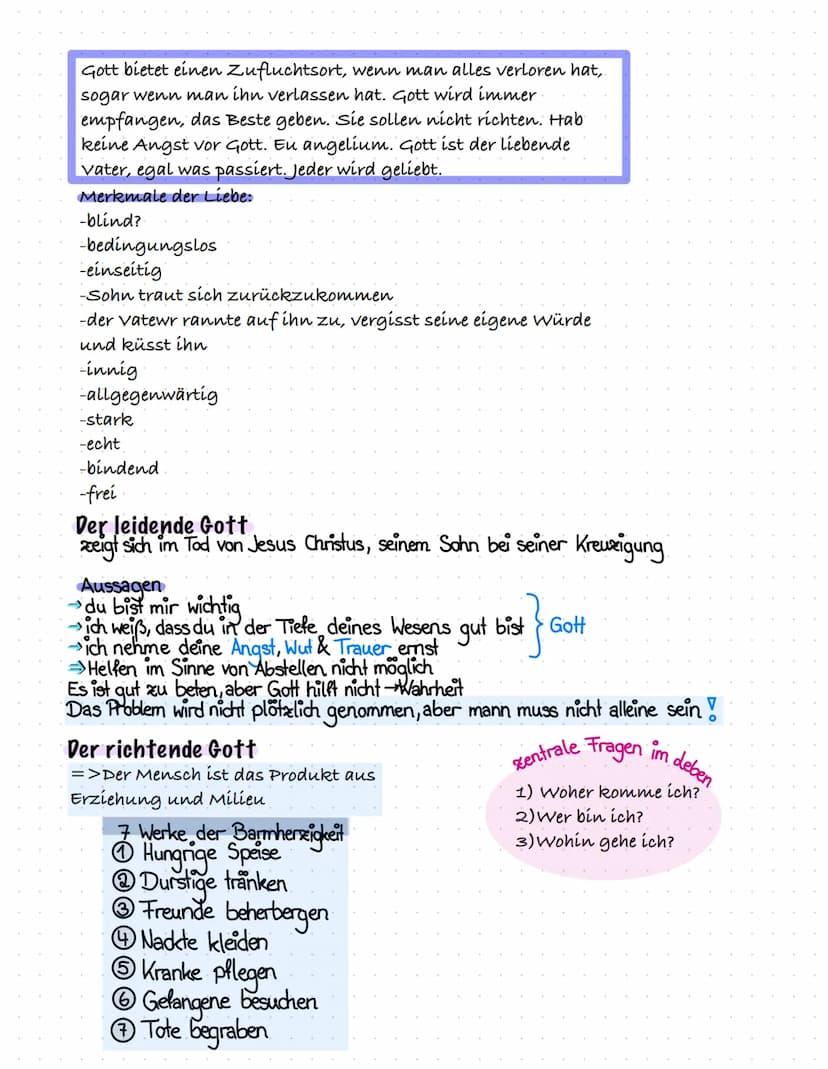 Gott bietet einen Zufluchtsort, wenn man alles verloren hat,
sogar wenn man ihn verlassen hat. Gott wird immer
empfangen, das Beste geben. Sie sollen nicht richten. Hab
keine Angst vor Gott. Eu angelium. Gott ist der liebende
Vater, egal was passiert. Jeder wird geliebt.
Merkmale der Liebe:
-blind?
-bedingungslos
-einseitig
-Sohn traut sich zurückzukommen
-der Vatewr rannte auf ihn zu, vergisst seine eigene Würde
und küsst ihn
-innig
-allgegenwärtig
-stark
-echt
-bindend
-frei
Der leidende Gott
zeigt sich im Tod von Jesus Christus, seinem Sohn bei seiner Kreuzigung
Aussagen
→du bist mir wichtig
→ich weiß, dass du in der Tiefe deines Wesens gut bist } Gott
→ich nehme deine Angst, Wut & Trauer ernst
⇒Helfen im Sinne von Abstellen nicht möglich
Es ist gut zu beten, aber Gott hilft nicht →Wahrheit
Das Problem wird nicht plötzlich genommen, aber mann muss nicht alleine sein!
Der richtende Gott
=>Der Mensch ist das Produkt aus
Erziehung und Milieu
7 Werke der Barmherzigkeit
① Hungrige Speise
② Durstige tränken
③ Freunde beherbergen
④ Nackte kleiden
⑤ Kranke pflegen
⑥ Gefangene besuchen
⑦ Tote begraben
zentrale Fragen im deben
1) Woher komme ich?
2)Wer bin ich?
3)Wohin gehe ich?